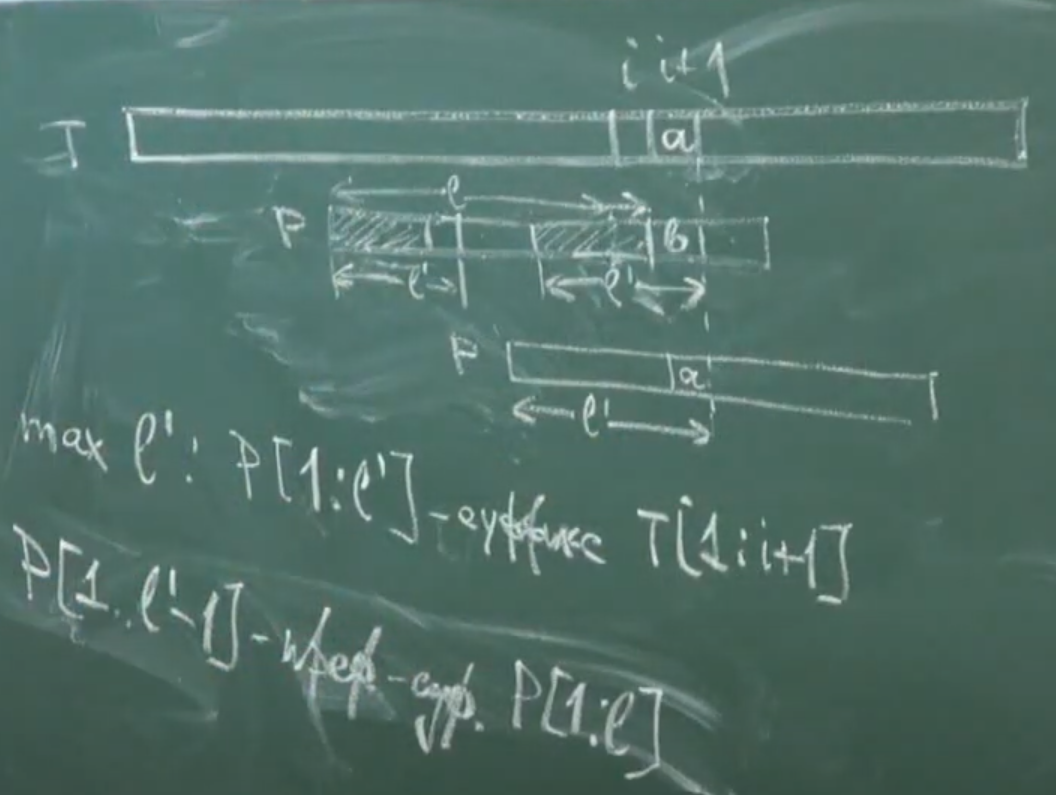 i i+1
T a
l
P b
l' l'
P a
l'
max l': P[1:l'] - суффикс T[1:i+1]
P[1..l'-1] - преф-суф. P[1:l]